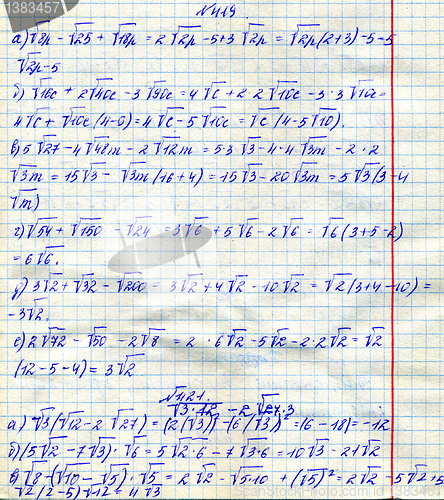 №419
а) √8p - √25 + √18p = 2√2p - 5 + 3√2p = √2p(2+3) - 5 = 5
√2p - 5
б) √16c + 2√40c - 3√90c = 4√c + 2·2√10c - 3·3√10c =
4√c + √10c(4-9) = 4√c - 5√10c = √c(4-5√10).
в) 5√27 - 4√48m - 2√12m = 5·3√3 - 4·4√3m - 2·2
√3m = 15√3 - √3m(16+4) = 15√3 - 20√3m = 5√3(3-4
√m)
г) √54 + √150 - √24 = 3√6 + 5√6 - 2√6 = √6(3+5-2)
= 6√6.
д) 3√2 + √32 - √200 = 3√2 + 4√2 - 10√2 = √2(3+4-10) =
-3√2.
е) 2√72 - √50 - 2√8 = 2·6√2 - 5√2 - 2·2√2 = √2
(12-5-4) = 3√2.
№421.
√3·12 - 2√27·3
а) √3(√12 - 2√27) = (2(√3)² - (6(√3)² = (6-18) = -12
б) (5√2 - 7√3)·√6 = 5√2·6 - 7√3·6 = 10√3 - 21√2
в) √8 - (√10 - √5)·√5 = 2√2 - √5·10 + (√5)² = 2√2 - 5√2+5
√2(2-5) √12 = 4√3
shutterstock
1383457